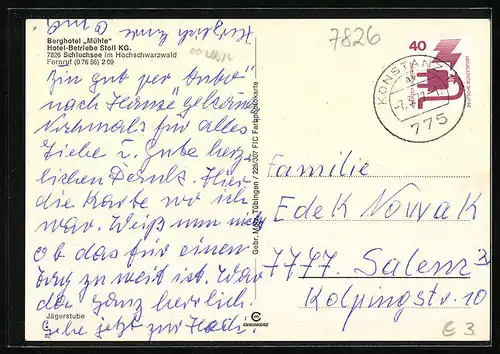 Berghotel „Mühle"
Hotel-Betriebe Stoll KG.
7826 Schluchsee im Hochschwarzwald
Fernruf (0 76 56) 2 09
Bin gut per Auto
nach Hause gekommen
Nochmals für alles
Liebe u. Gute herz-
lichen Dank. Hier
die Karte wo ich
war. Weiß nun nicht
ob das für einen
Tag zu weit ist. War
da ganz herrlich.
Gehe jetzt zur
Jägerstube
Gebr. Metz, Tübingen / 225/307 FIC Farbpostkarte
7826
40
DEUTSCHE BUNDESPOST
KONSTANZ
775
Familie
Edek Nowak
7777 Salem 2
Kolpingstr. 10
€ 3